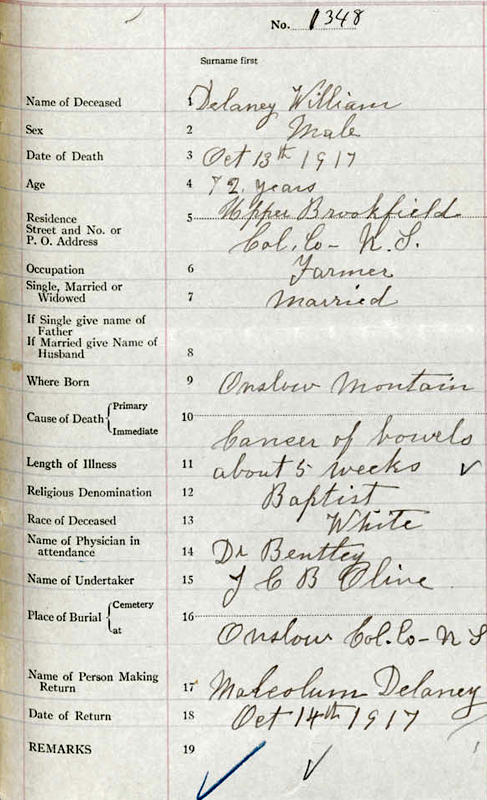 No. 1348
Surname first
Name of Deceased 1 Delaney William
Sex 2 Male
Date of Death 3 Oct 13th 1917
Age 4 72 years
Residence
Street and No. or
P. O. Address 5 Upper Brookfield
Col. Co - N. S.
Occupation 6 Farmer
Single, Married or
Widowed 7 Married
If Single give name of
Father
If Married give Name of
Husband 8
Where Born 9 Onslow Montain
Cause of Death { Primary 10
Immediate Cancer of bowels
Length of Illness 11 about 5 weeks ✓
Religious Denomination 12 Baptist
Race of Deceased 13 White
Name of Physician in
attendance 14 Dr Bentley
Name of Undertaker 15 J C B Olive
Place of Burial { Cemetery 16
at Onslow Col. Co - N S
Name of Person Making
Return 17 Malcolum Delaney
Date of Return 18 Oct 14th 1917
REMARKS 19